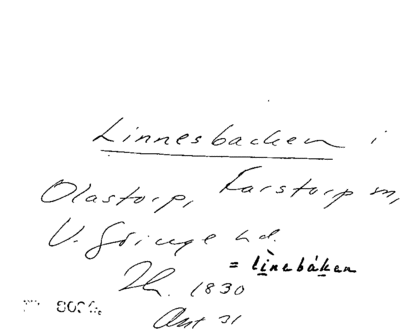 Linnesbacken i
Olastorp, Farstorp sn,
V. Göinge hd.
= lìnebáken
1830
Ant 31